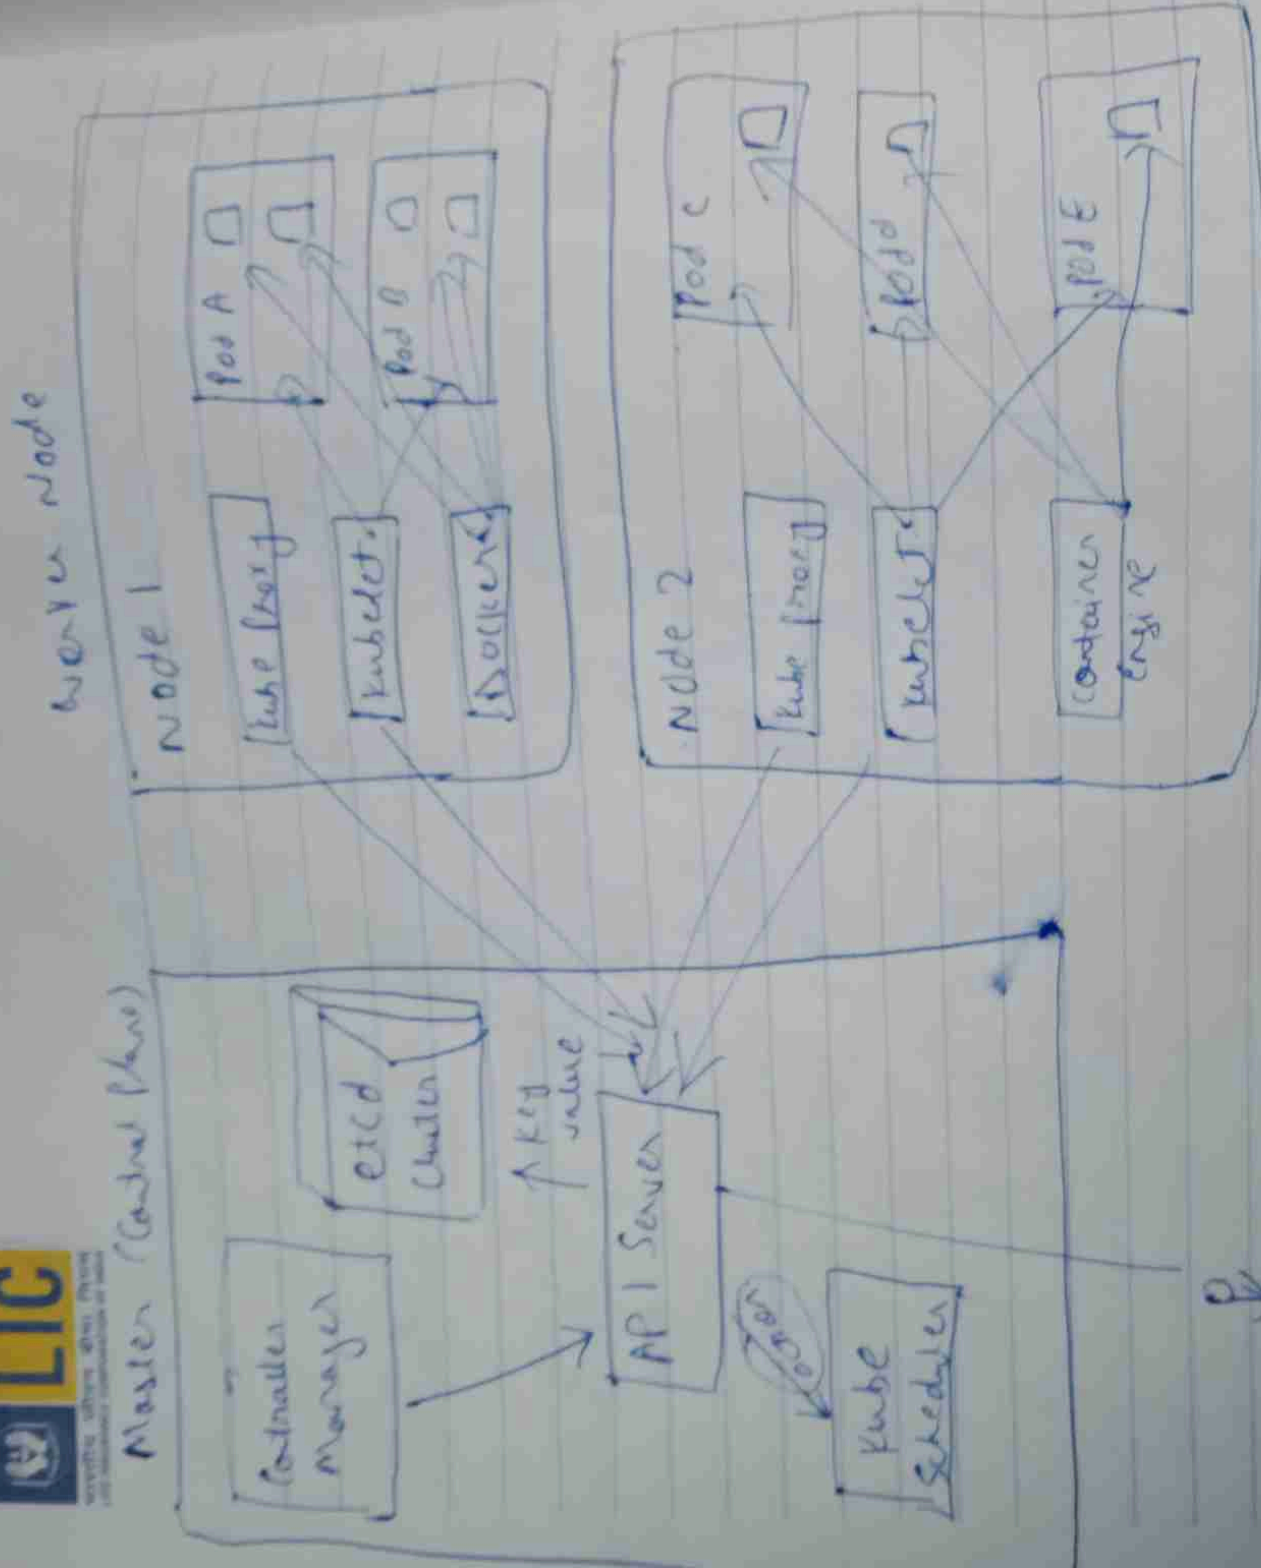 LIC
भारतीय जीवन बीमा निगम
LIFE INSURANCE CORPORATION OF INDIA
Master (Control Plane)
Controller
Manager
etcd
Cluster
Key
value
API Server
Kube
Scheduler
Worker Node
Node 1
Kube Proxy
Kubelet
Docker
Pod A
Pod B
Node 2
Kube Proxy
Kubelet
Container
Engine
Pod C
Pod d
Pod E